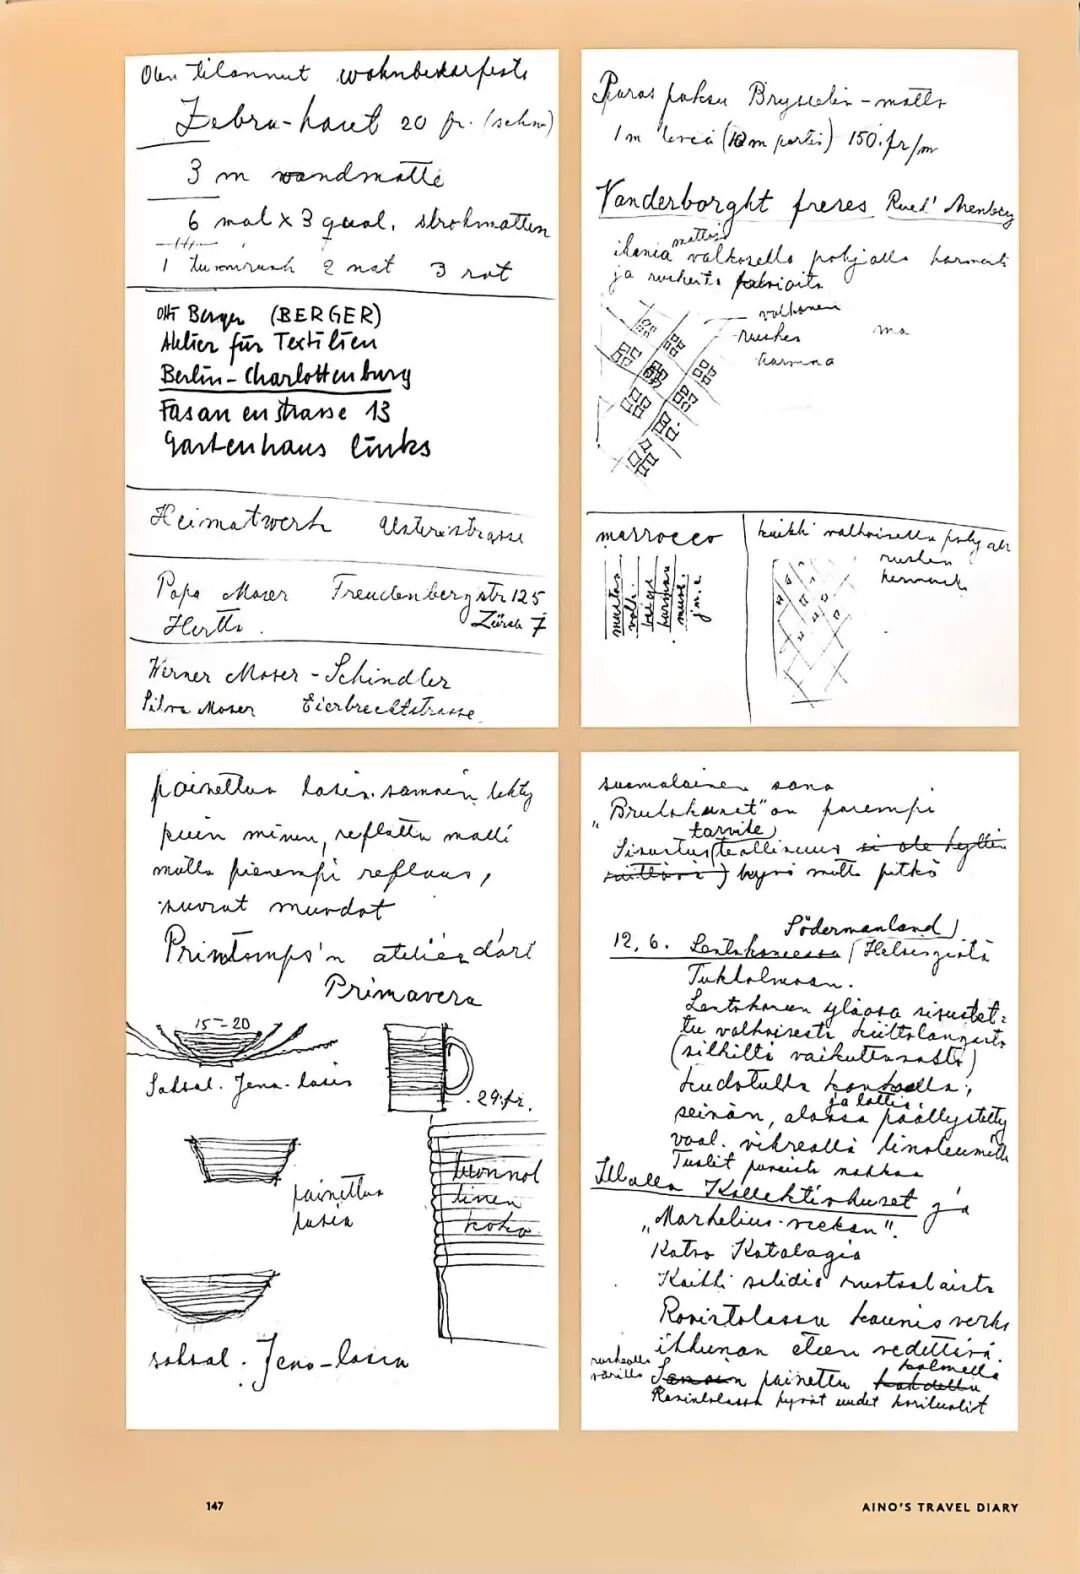 Olen tilannut wohnbedarfista
Zebra-haut 20 fr. (schw)
3 m wandmatte
6 mal x 3 qual. strohmatten
1 2 nat 3 rot
Otti Berger (BERGER)
Atelier für Textilien
Berlin-Charlottenburg
Fasanenstrasse 13
Gartenhaus links
Heimatwerk Usteristrasse
Papa Moser Freudenbergstr 125
Hertta Zürich 7
Werner Moser-Schindler
Silva Moser Eierbrechtstrasse
Paras paksu Brysselin-matto
1 m leveä (10 m ) 150.fr/m
Vanderborght freres Rue d'Arenberg
mattoja
ihania valkosella pohjalla harmaita
ja ruskeita
valkonen
ruskea ma
harmaa
marrocco
mustaa
valk.
beige
harmaa
musc.
j.n.e.
kaikki valkoisella pohjalla
ruskea
painettua lasia samoin tehty
kuin minun, reflattu malli
mutta pienempi reflaus,
suorat muodot
Printemps'n atelier d'art
Primavera
15-20
Saksal. Jena-lasia
29.fr.
painettua
lasia
luonnol
linen
koko
saksal. Jena-lasia
suomalainen sana
"Brukskonst" on parempi
tarvite
Sisustus(teollisuus ei ole
) hyvä mutta pitkä
Södermanland)
12.6. Lentokoneessa (Helsingistä
Tukholmaan.
Lentokoneen yläosa sisustet-
tu valkoisesta kiiltolangasta
(silkiltä vaikuttavasta)
kudotulla kankaalla,
ja lattia
seinän, alaosa päällystetty
vaal. vihreällä linoleumilla
Tuolit punaista nahkaa
Illalla Kollektivhuset ja
"Markelius-veckan".
Katso Katalogia
Kaikki solidia ruotsalaista
Ravintolassa kaunis verho
ikkunan eteen vedettävä.
kolmella
ruskealla
värillä Samoin painettu kahdella
Ravintolassa hyvät uudet korituolit
147
AINO'S TRAVEL DIARY